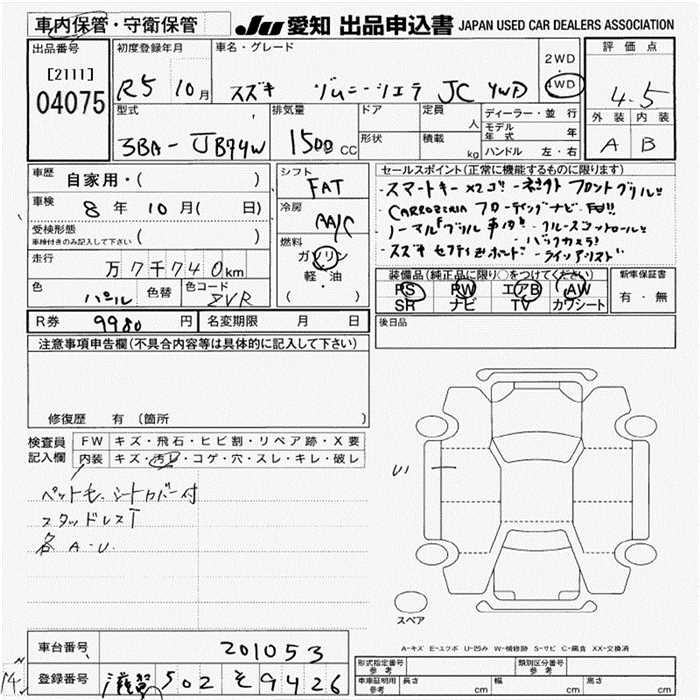 車内保管・守衛保管 JU 愛知 出品申込書 JAPAN USED CAR DEALERS ASSOCIATION
出品番号
[2111]
04075
初度登録年月
R5 10月
車名・グレード
スズキ ジムニーシエラ JC 4WD
2WD
4WD
評価点
4.5
外装 内装
A B
型式
3BA-JB74W
排気量
1500 CC
ドア
形状
定員
人
積載
kg
ディーラー・並行
モデル年式 年
ハンドル 左・右
車歴 自家用・( )
車検 8年 10月( 日)
受検形態
車検付きのみ記入して下さい ( )
走行 万7千740km
色 パール 色替 色コード ZVR
シフト
FAT
冷房
AA/C
燃料
ガソリン
軽・油
( )
セールスポイント(正常に機能するものに限ります)
・スマートキー×2コ!! ・ネオクト フロントグリル!!
・CARROZZERIA フローティングナビ
・ノーマルグリル車内!! ・クルーズコントロール!!
・バックカメラ!
・スズキ セーフティサポート
装備品(純正品に限り○をつけてください)
PS PW エアB AW
SR ナビ TV カワシート
新車保証書
有・無
R券 9980 円 名変期限 月 日
後日品
注意事項申告欄(不具合内容等は具体的に記入して下さい)
修復歴 有(箇所 )
検査員記入欄
FW キズ・飛石・ヒビ割・リペア跡・X要
内装 キズ・汚レ・コゲ・穴・スレ・キレ・破レ
ペット毛、シートカバー付
スタッドレスT
各 A.U.
U1
スペア
A-キズ E-エクボ U-凹み W-補修跡 S-サビ C-腐食 XX-交換済
車台番号 201053
登録番号 滋賀 502 そ 9426
形式指定番号 参考
類別区分番号 参考
車庫証明用 参考 長さ cm 幅 cm 高さ cm